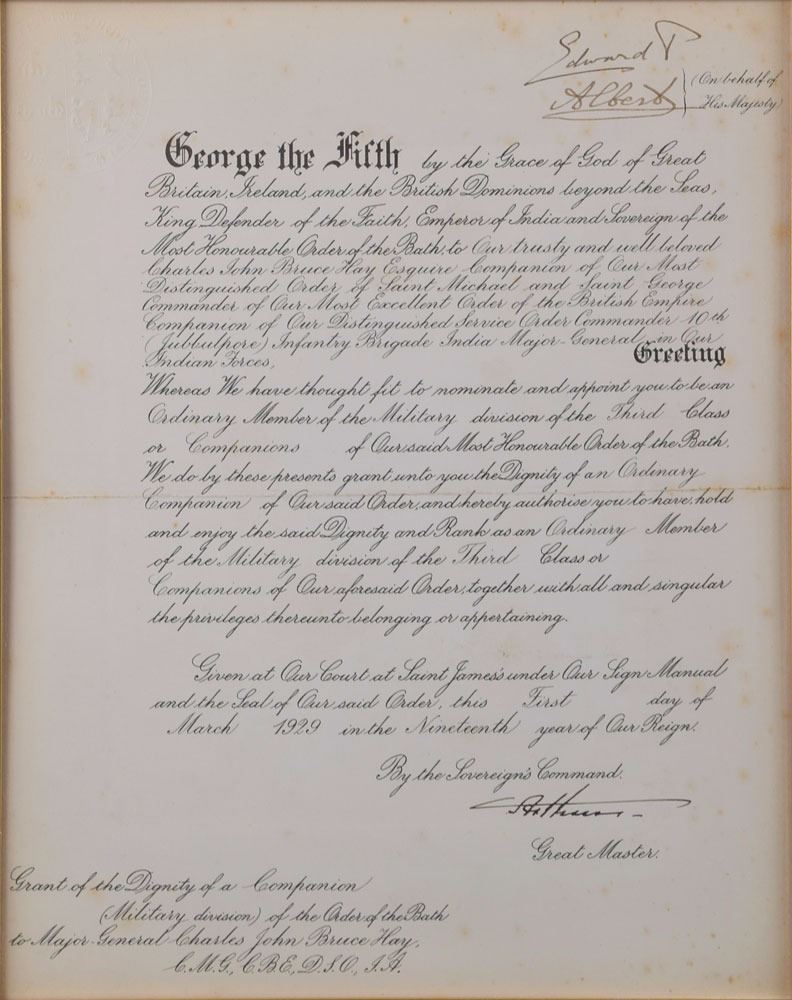 Edward P
Albert
(On behalf of
His Majesty)
George the Fifth by the Grace of God of Great
Britain, Ireland, and the British Dominions beyond the Seas,
King, Defender of the Faith, Emperor of India and Sovereign of the
Most Honourable Order of the Bath, to Our trusty and well beloved
Charles John Bruce Hay Esquire Companion of Our Most
Distinguished Order of Saint Michael and Saint George
Commander of Our Most Excellent Order of the British Empire
Companion of Our Distinguished Service Order Commander 10th
(Jubbulpore) Infantry Brigade India Major-General in Our
Indian Forces,
Greeting
Whereas We have thought fit to nominate and appoint you to be an
Ordinary Member of the Military division of the Third Class
or Companions of Our said Most Honourable Order of the Bath.
We do by these presents grant unto you the Dignity of an Ordinary
Companion of Our said Order, and hereby authorise you to have, hold
and enjoy the said Dignity and Rank as an Ordinary Member
of the Military division of the Third Class or
Companions of Our aforesaid Order, together with all and singular
the privileges thereunto belonging or appertaining.
Given at Our Court at Saint James's under Our Sign Manual
and the Seal of Our said Order, this First day of
March 1929 in the Nineteenth year of Our Reign.
By the Sovereign's Command.
Arthur
Great Master.
Grant of the Dignity of a Companion
(Military division) of the Order of the Bath
to Major-General Charles John Bruce Hay,
C.M.G., C.B.E., D.S.O., I.A.